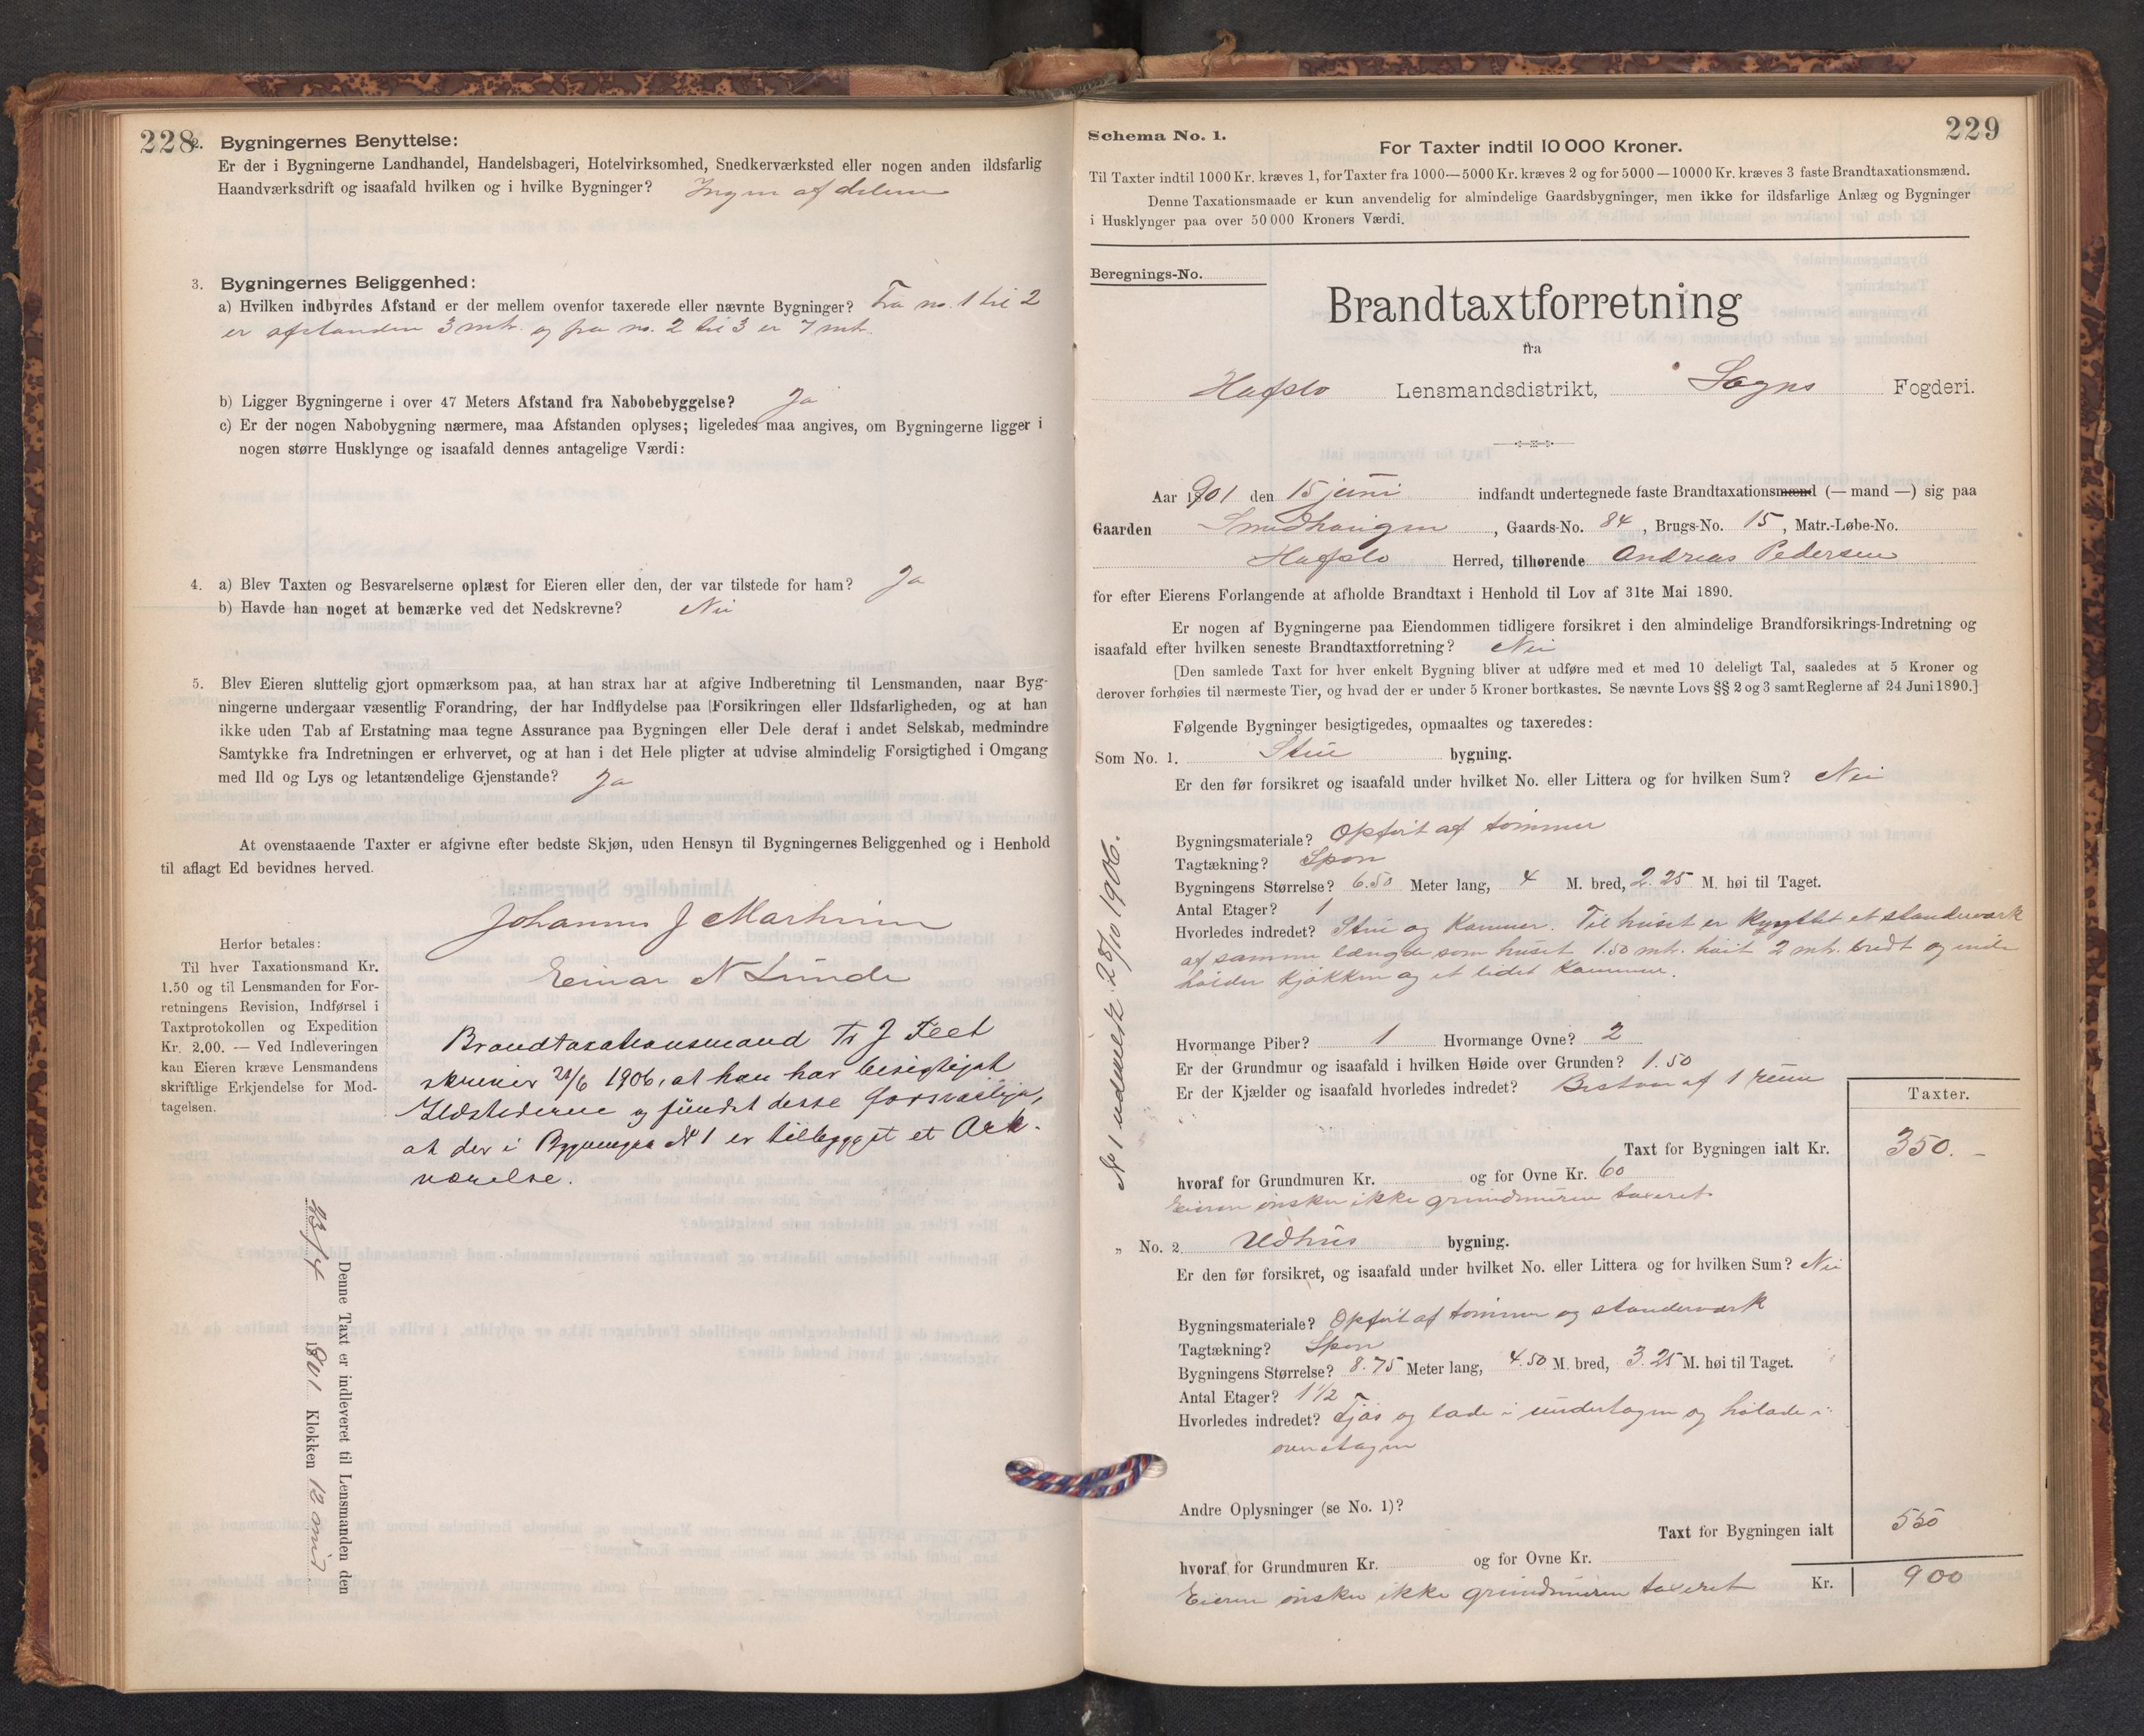 228
2. Bygningernes Benyttelse:
Er der i Bygningerne Landhandel, Handelsbageri, Hotelvirksomhed, Snedkerværksted eller nogen anden ildsfarlig
Haandværksdrift og isaafald hvilken og i hvilke Bygninger? Ingen af delene
3. Bygningernes Beliggenhed:
a) Hvilken indbyrdes Afstand er der mellem ovenfor taxerede eller nævnte Bygninger? Fra no. 1 til 2
er afstanden 3 mtr. og fra no. 2 til 3 er 7 mtr.
b) Ligger Bygningerne i over 47 Meters Afstand fra Nabobebyggelse? Ja
c) Er der nogen Nabobygning nærmere, maa Afstanden oplyses; ligeledes maa angives, om Bygningerne ligger i
nogen større Husklynge og isaafald dennes antagelige Værdi:
4. a) Blev Taxten og Besvarelserne oplæst for Eieren eller den, der var tilstede for ham? Ja
b) Havde han noget at bemærke ved det Nedskrevne? Nei
5. Blev Eieren sluttelig gjort opmærksom paa, at han strax har at afgive Indberetning til Lensmanden, naar Byg-
ningerne undergaar væsentlig Forandring, der har Indflydelse paa Forsikringen eller Ildsfarligheden, og at han
ikke uden Tab af Erstatning maa tegne Assurance paa Bygningen eller Dele deraf i andet Selskab, medmindre
Samtykke fra Indretningen er erhvervet, og at han i det Hele pligter at udvise almindelig Forsigtighed i Omgang
med Ild og Lys og letantændelige Gjenstande? Ja
At ovenstaaende Taxter er afgivne efter bedste Skjøn, uden Hensyn til Bygningernes Beliggenhed og i Henhold
til aflagt Ed bevidnes herved.
Johannes J Marheim
Einar N Lunde
Herfor betales:
Til hver Taxationsmand Kr.
1.50 og til Lensmanden for For-
retningens Revision, Indførsel i
Taxtprotokollen og Expedition
Kr. 2.00. — Ved Indleveringen
kan Eieren kræve Lensmandens
skriftlige Erkjendelse for Mod-
tagelsen.
Brandtaxationsmand J Feet
skriver 28/6 1906, at han har besigtiget
Ildstederne og fundet desse forsvarlige,
at der i Bygningen No 1 er tilbygget et Ark-
værelse.
Denne Taxt er indleveret til Lensmanden den
23/4 1901 Klokken 12 omid.
229
Schema No. 1.
For Taxter indtil 10 000 Kroner.
Til Taxter indtil 1000 Kr. kræves 1, for Taxter fra 1000—5000 Kr. kræves 2 og for 5000—10000 Kr. kræves 3 faste Brandtaxationsmænd.
Denne Taxationsmaade er kun anvendelig for almindelige Gaardsbygninger, men ikke for ildsfarlige Anlæg og Bygninger
i Husklynger paa over 50 000 Kroners Værdi.
Beregnings-No.
Brandtaxtforretning
fra
Hafslo Lensmandsdistrikt, Sogns Fogderi.
Aar 1901 den 15 juni indfandt undertegnede faste Brandtaxationsmænd (— mand —) sig paa
Gaarden Smedhaugen, Gaards-No. 84, Brugs-No. 15, Matr.-Løbe-No.
Hafslo Herred, tilhørende Andreas Pedersen
for efter Eierens Forlangende at afholde Brandtaxt i Henhold til Lov af 31te Mai 1890.
Er nogen af Bygningerne paa Eiendommen tidligere forsikret i den almindelige Brandforsikrings-Indretning og
isaafald efter hvilken seneste Brandtaxtforretning? Nei
[Den samlede Taxt for hver enkelt Bygning bliver at udføre med et med 10 deleligt Tal, saaledes at 5 Kroner og
derover forhøies til nærmeste Tier, og hvad der er under 5 Kroner bortkastes. Se nævnte Lovs §§ 2 og 3 samt Reglerne af 24 Juni 1890.]
Følgende Bygninger besigtigedes, opmaaltes og taxeredes:
Som No. 1. Stue bygning.
Er den før forsikret og isaafald under hvilket No. eller Littera og for hvilken Sum? Nei
Bygningsmateriale? Opført af tømmer
Tagtækning? Spon
Bygningens Størrelse? 6.50 Meter lang, 4 M. bred, 2.25 M. høi til Taget.
Antal Etager? 1
Hvorledes indredet? Stue og Kammer. Til huset er knyttet et standerværk
af samme længde som huset 1.50 mtr. høit 2 mtr. bredt og inde
holder kjøkken og et lidet Kammer.
Hvormange Piber? 1 Hvormange Ovne? 2
Er der Grundmur og isaafald i hvilken Høide over Grunden? 1.50
Er der Kjælder og isaafald hvorledes indredet? Bestaar af 1 rum
Taxter.
Taxt for Bygningen ialt Kr. 350.-
hvoraf for Grundmuren Kr. og for Ovne Kr. 60
Eieren ønsker ikke grundmuren taxeret.
No 1 udmeldt 28/10 1906.
„ No. 2 Udhus bygning.
Er den før forsikret, og isaafald under hvilket No. eller Littera og for hvilken Sum? Nei
Bygningsmateriale? Opført af tømmer og standerværk
Tagtækning? Spon
Bygningens Størrelse? 8.75 Meter lang, 4.50 M. bred, 3.25 M. høi til Taget.
Antal Etager? 1 1/2
Hvorledes indredet? Fjøs og lade i underetagen og hølade i
overetagen
Andre Oplysninger (se No. 1)?
Taxt for Bygningen ialt 550
hvoraf for Grundmuren Kr. og for Ovne Kr.
Eieren ønsker ikke grundmuren taxeret Kr. 900